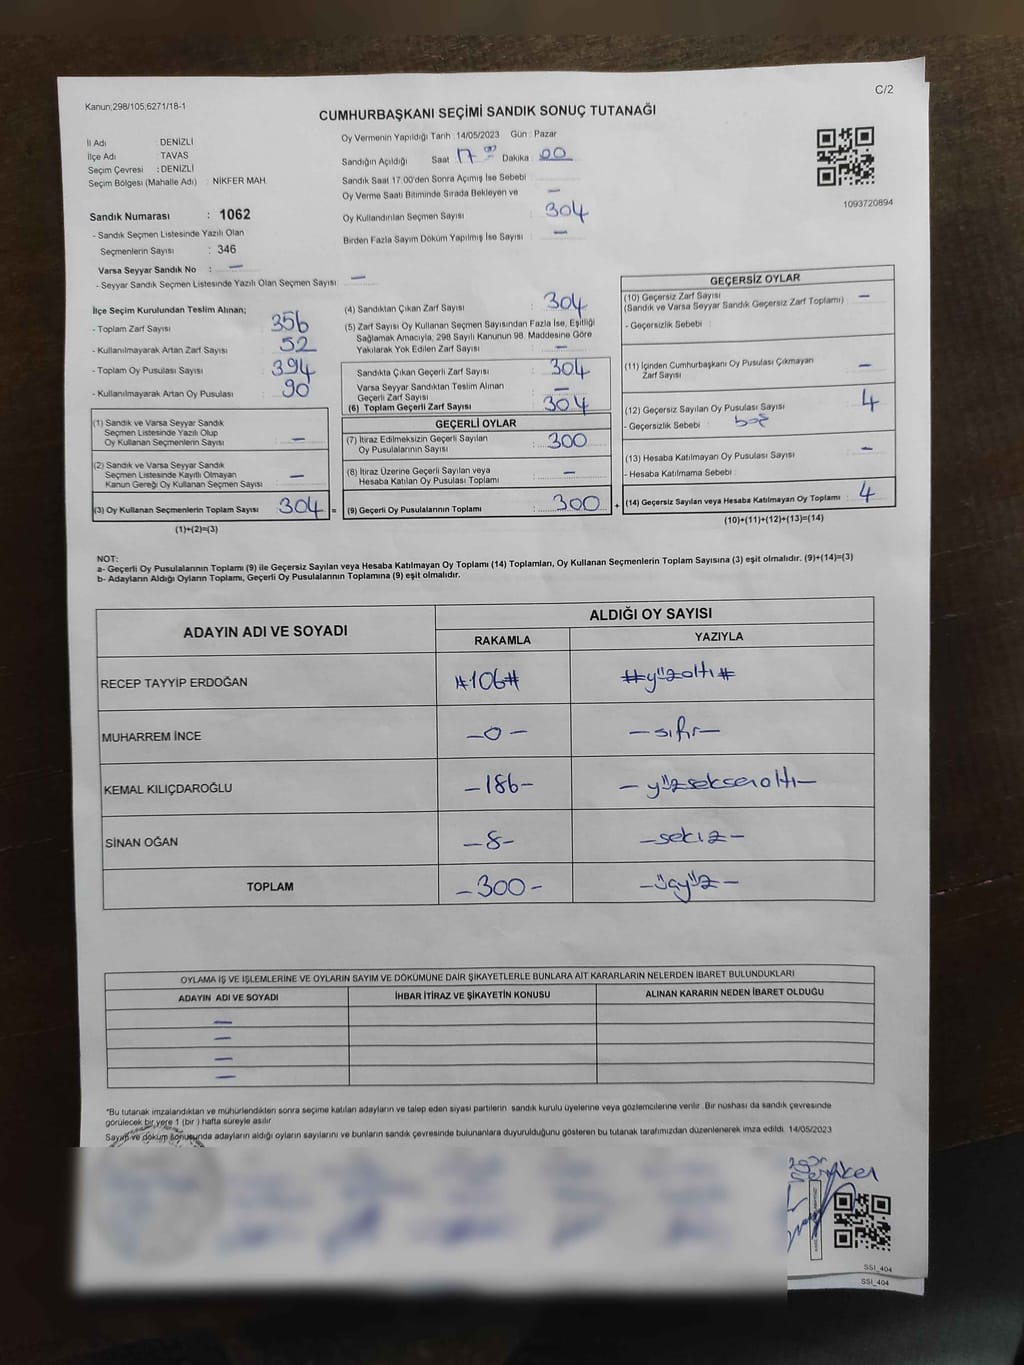 Kanun,298/105,6271/18-1
C/2
CUMHURBAŞKANI SEÇİMİ SANDIK SONUÇ TUTANAĞI
İl Adı DENİZLİ
İlçe Adı TAVAS
Seçim Çevresi : DENİZLİ
Seçim Bölgesi (Mahalle Adı) : NİKFER MAH.
Oy Vermenin Yapıldığı Tarih :14/05/2023 Gün : Pazar
Sandığın Açıldığı Saat 17 00 Dakika 00
Sandık Saat 17.00'den Sonra Açımış İse Sebebi
Oy Verme Saati Bitiminde Sırada Bekleyen ve —
Oy Kullandırılan Seçmen Sayısı 304
Birden Fazla Sayım Döküm Yapılmış İse Sayısı —
1093720894
Sandık Numarası : 1062
- Sandık Seçmen Listesinde Yazılı Olan
Seçmenlerin Sayısı : 346
Varsa Seyyar Sandık No : —
- Seyyar Sandık Seçmen Listesinde Yazılı Olan Seçmen Sayısı : —
İlçe Seçim Kurulundan Teslim Alınan;
- Toplam Zarf Sayısı 356
- Kullanılmayarak Artan Zarf Sayısı 52
- Toplam Oy Pusulası Sayısı 394
- Kullanılmayarak Artan Oy Pusulası 90
(1) Sandık ve Varsa Seyyar Sandık
Seçmen Listesinde Yazılı Olup
Oy Kullanan Seçmenlerin Sayısı —
(2) Sandık ve Varsa Seyyar Sandık
Seçmen Listesinde Kayıtlı Olmayan
Kanun Gereği Oy Kullanan Seçmen Sayısı —
(3) Oy Kullanan Seçmenlerin Toplam Sayısı 304 =
(1)+(2)=(3)
(4) Sandıktan Çıkan Zarf Sayısı 304
(5) Zarf Sayısı Oy Kullanan Seçmen Sayısından Fazla İse, Eşitliği
Sağlamak Amacıyla; 298 Sayılı Kanunun 98. Maddesine Göre
Yakılarak Yok Edilen Zarf Sayısı —
Sandıkta Çıkan Geçerli Zarf Sayısı 304
Varsa Seyyar Sandıktan Teslim Alınan
Geçerli Zarf Sayısı —
(6) Toplam Geçerli Zarf Sayısı 304
GEÇERLİ OYLAR
(7) İtiraz Edilmeksizin Geçerli Sayılan
Oy Pusulalarının Sayısı 300
(8) İtiraz Üzerine Geçerli Sayılan veya
Hesaba Katılan Oy Pusulası Toplamı —
(9) Geçerli Oy Pusulalarının Toplamı 300 +
GEÇERSİZ OYLAR
(10) Geçersiz Zarf Sayısı
(Sandık ve Varsa Seyyar Sandık Geçersiz Zarf Toplamı) —
- Geçersizlik Sebebi :
(11) İçinden Cumhurbaşkanı Oy Pusulası Çıkmayan
Zarf Sayısı —
(12) Geçersiz Sayılan Oy Pusulası Sayısı 4
- Geçersizlik Sebebi : boş
(13) Hesaba Katılmayan Oy Pusulası Sayısı —
- Hesaba Katılmama Sebebi :
(14) Geçersiz Sayılan veya Hesaba Katılmayan Oy Toplamı 4
(10)+(11)+(12)+(13)=(14)
NOT:
a- Geçerli Oy Pusulalarının Toplamı (9) ile Geçersiz Sayılan veya Hesaba Katılmayan Oy Toplamı (14) Toplamları, Oy Kullanan Seçmenlerin Toplam Sayısına (3) eşit olmalıdır. (9)+(14)=(3)
b- Adayların Aldığı Oyların Toplamı, Geçerli Oy Pusulalarının Toplamına (9) eşit olmalıdır.
ADAYIN ADI VE SOYADI ALDIĞI OY SAYISI
RAKAMLA YAZIYLA
RECEP TAYYİP ERDOĞAN #106# #yüzaltı#
MUHARREM İNCE —0— —sıfır—
KEMAL KILIÇDAROĞLU —186— —yüzseksenaltı—
SİNAN OĞAN —8— —sekiz—
TOPLAM —300— —üçyüz—
OYLAMA İŞ VE İŞLEMLERİNE VE OYLARIN SAYIM VE DÖKÜMÜNE DAİR ŞİKAYETLERLE BUNLARA AİT KARARLARIN NELERDEN İBARET BULUNDUKLARI
ADAYIN ADI VE SOYADI İHBAR İTİRAZ VE ŞİKAYETİN KONUSU ALINAN KARARIN NEDEN İBARET OLDUĞU
—
—
—
—
*Bu tutanak imzalandıktan ve mühürlendikten sonra seçime katılan adayların ve talep eden siyasi partilerin sandık kurulu üyelerine veya gözlemcilerine verilir. Bir nüshası da sandık çevresinde
görülecek bir yere 1 (bir ) hafta süreyle asılır.
Sayım ve döküm sonusunda adayların aldığı oyların sayılarını ve bunların sandık çevresinde bulunanlara duyurulduğunu gösteren bu tutanak tarafımızdan düzenlenerek imza edildi. 14/05/2023
SSI_404
SSI_404